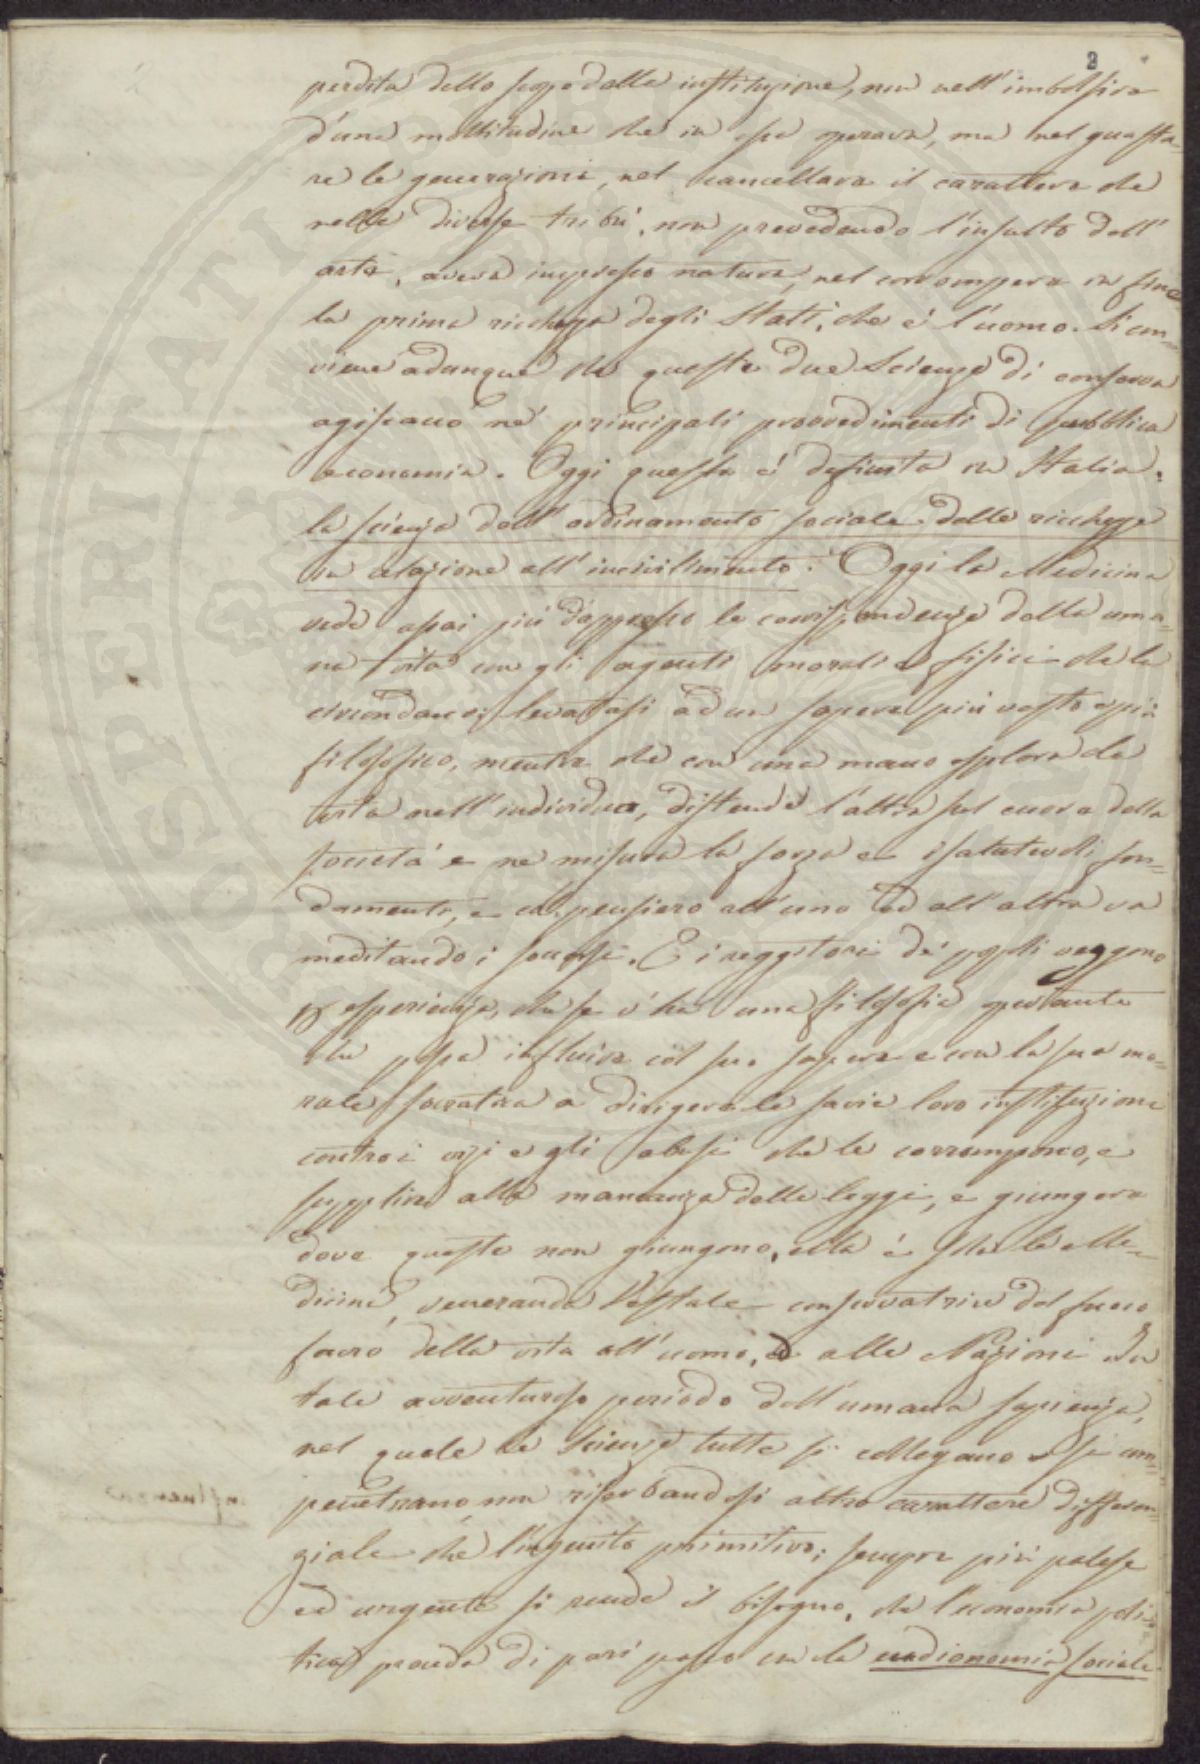 2
perdita dello scopo della instituzione, non nell'imbolsire
d'una moltitudine che in essa operava, ma nel guasta-
re le generazioni, nel cancellare il carattere che
nelle diverse tribù, non prevedendo l'insulto dell'
arte, aveva impresso natura, nel corrompere in fine
la prima ricchezza degli Stati, che è l'uomo. Si con-
viene adunque che queste due Scienze di conserva
agiscano ne' principali provvedimenti di pubblica
economia. Oggi questa è definita in Italia,
la scienza dell'ordinamento sociale delle ricchezze
in relazione all'incivilimento. Oggi la Medicina
vede assai più d'appresso le corrispondenze della uma-
na vita con gli agenti morali e fisici che la
circondano; levatasi ad un sapere più vasto e più
filosofico, mentre che con una mano esplora la
vita nell'individuo, distende l'altra sul cuore della
società e ne misura la forza e i
damento, e col pensiero all'uno ed all'altra va
meditando i soccorsi. E i reggitori de' popoli veggono
per esperienza, che se v'ha una filosofia operante
che possa influire col suo sapere e con la sua mo-
rale socratica a dirigere le savie loro instituzioni
contro i vizi e gli abusi che le corrompono, e
supplire alla mancanza delle leggi, e giungere
dove queste non giungono, ella è sola la Me-
dicina, veneranda Vestale conservatrice del fuoco
sacro della vita all'uomo, e alle Nazioni. In
tale avventuroso periodo dell'umana sapienza,
nel quale le Scienze tutte si collegano e si com-
penetrano non riserbandosi altro carattere differen-
ziale che l'ingenito primitivo; sempre più palese
ed urgente si rende il bisogno, che l'economia poli-
tica proceda di pari passo con la eudionomia sociale